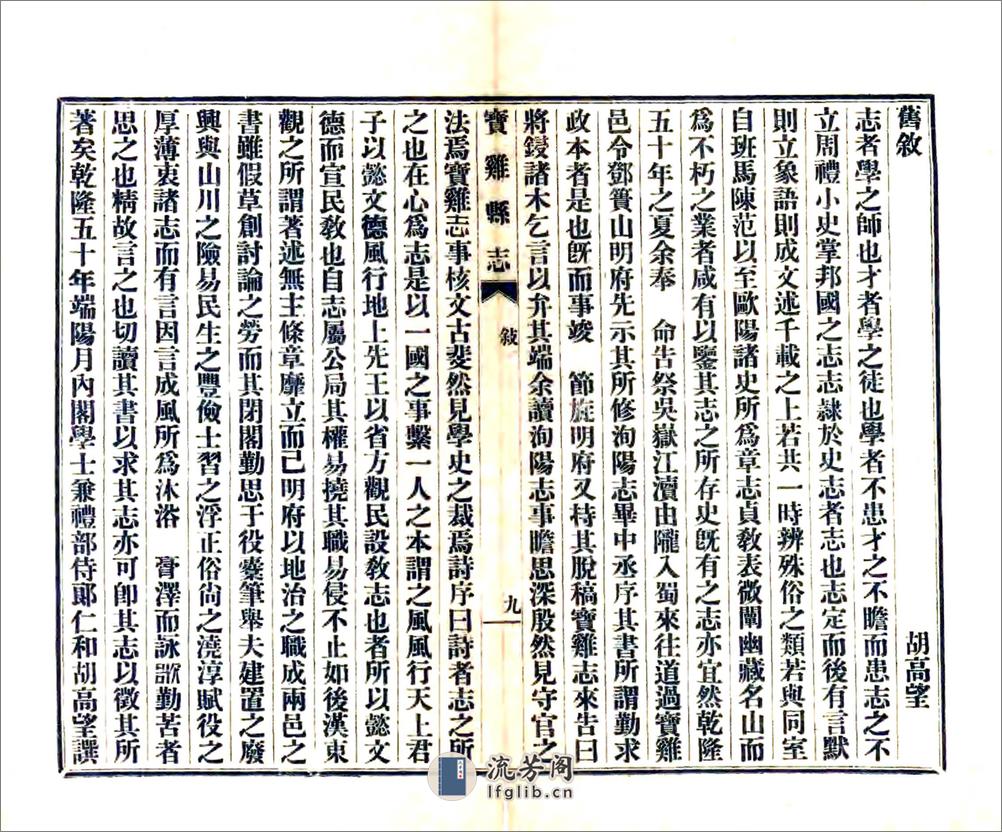 舊敘　胡高望
志者學之師也才者學之徒也學者不患才之不贍而患志之不
立周禮小史掌邦國之志志隸於史志者志也志定而後有言默
則立象語則成文述千載之上若共一時辨殊俗之類若與同室
自班馬陳范以至歐陽諸史所爲章志貞敎表微闡幽藏名山而
爲不朽之業者咸有以鑒其志之所存史旣有之志亦宜然乾隆
五十年之夏余奉　命告祭吳嶽江瀆由隴入蜀來往道過寶雞
邑令鄧簣山明府先示其所修洵陽志畢中丞序其書所謂勤求
政本者是也旣而事竣　節旋明府又持其脫稿寶雞志來告曰
將鋟諸木乞言以弁其端余讀洵陽志事瞻思深殷然見守官之
寶雞縣志　敍　九
法焉寶雞志事核文古斐然見學史之裁焉詩序曰詩者志之所
之也在心爲志是以一國之事繫一人之本謂之風風行天上君
子以懿文德風行地上先王以省方觀民設敎志也者所以懿文
德而宣民敎也自志屬公局其權易撓其職易侵不止如後漢東
觀之所謂著述無主條章靡立而已明府以地治之職成兩邑之
書雖假草創討論之勞而其閉閣勤思于役橐筆舉夫建置之廢
興與山川之險易民生之豐儉士習之浮正俗尙之澆淳賦役之
厚薄衷諸志而有言因言成風所爲沐浴　膏澤而詠歌勤苦者
思之也精故言之也切讀其書以求其志亦可卽其志以徵其所
著矣乾隆五十年端陽月內閣學士兼禮部侍郞仁和胡高望譔
流芳阁
lfglib.cn